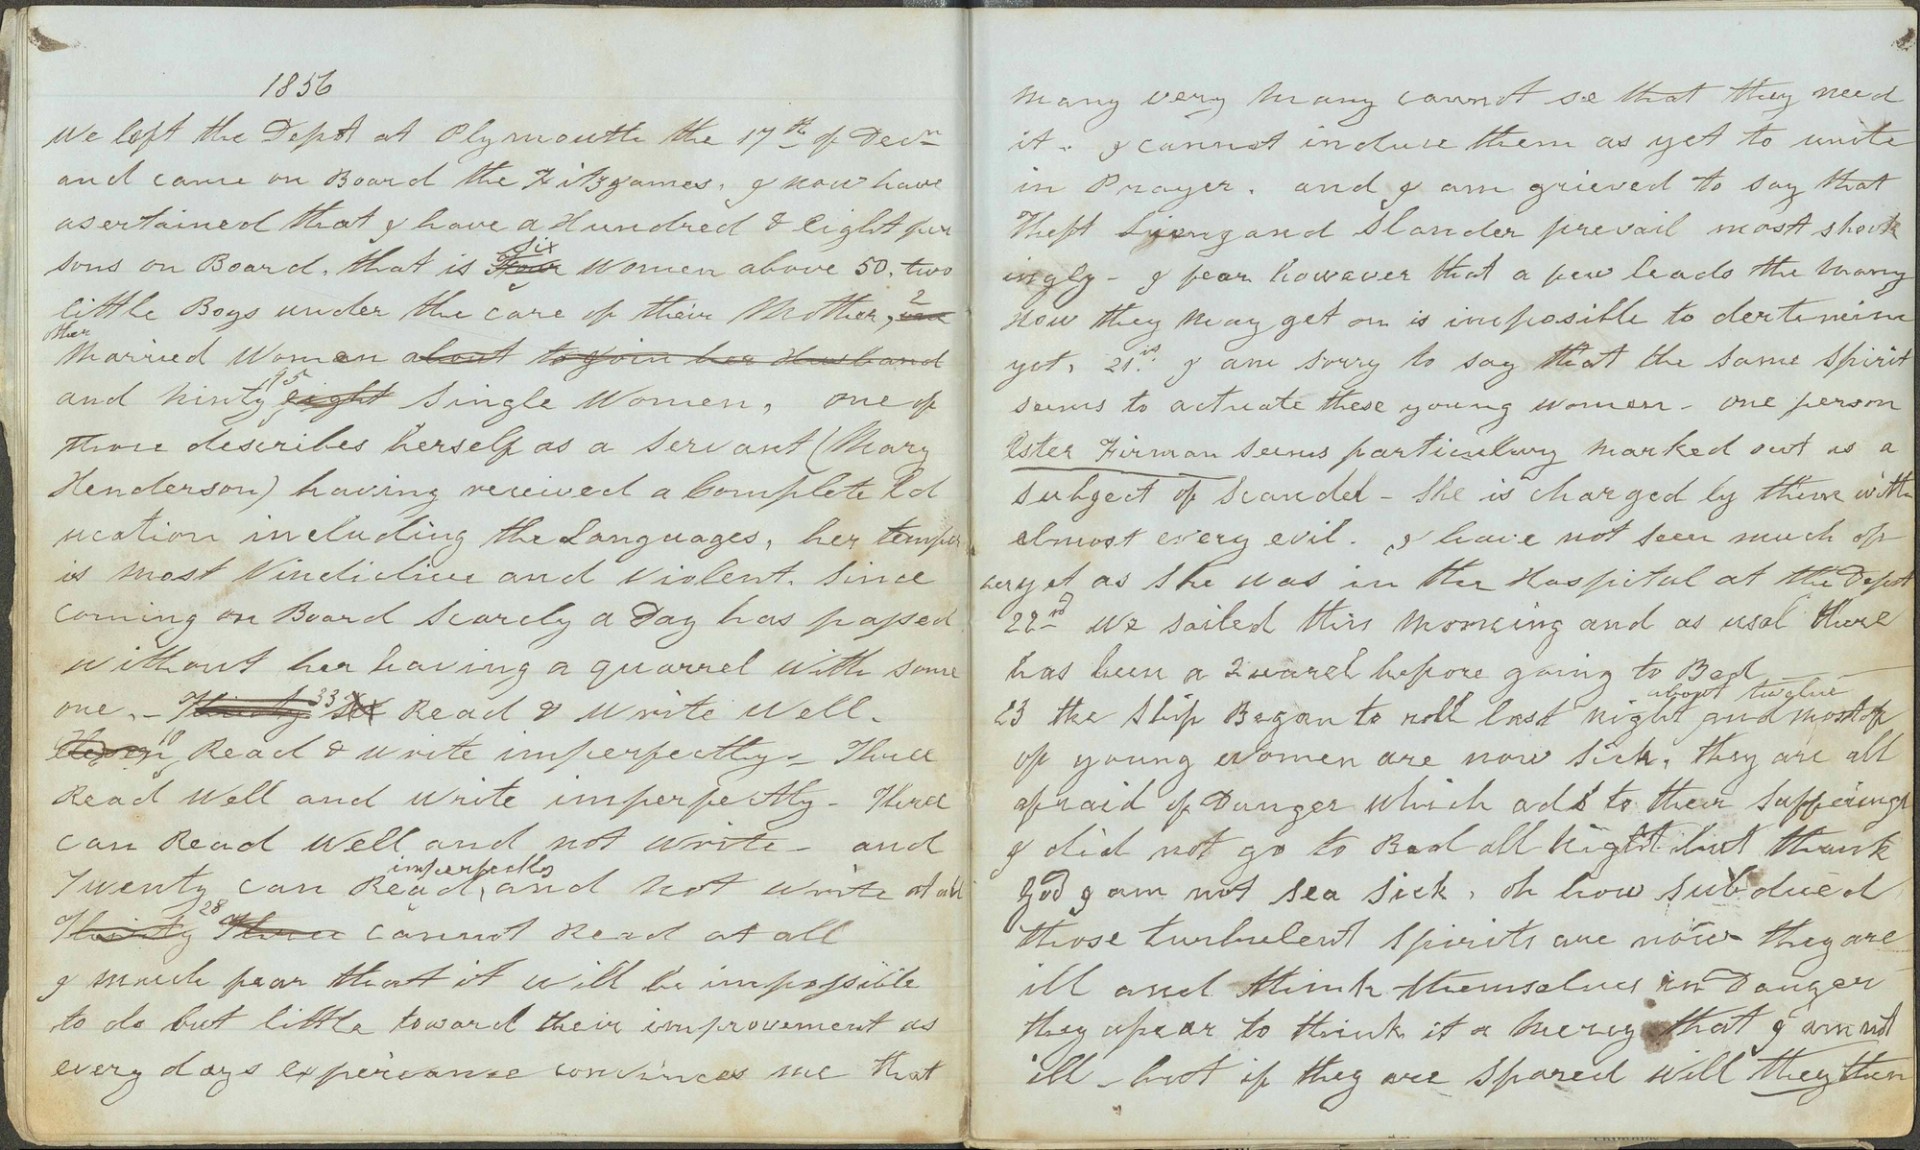 1856
We left the Depot at Plymouth the 17th of Decr
and came on Board the Fitzgames. I now have
asertained that I have a Hundred & Eight per
sons on Board. that is Four six Women above 50. two
little Boys under the care of their Mother, one 2
other
Married Women about to join her Husband
and ninty eight 95 Single Women, one of
those describes herself as a Servant (Mary
Henderson) having received a Complete Ed
ucation including the Languages, her temper
is most Vindictive and Violent. Since
coming on Board Scarcly a Day has passed
without her having a quarrel with some
one. - Thirty Six 33 Read & Write Well.
Eleven 10 Read & write imperfectly - Three
Read Well and Write imperfectly - Three
can Read Well and not Write - and
Twenty can Read imperfectly and not write at all
Thirty Three 28 cannot Read at all
I much fear that it will be impossible
to do but little toward their improvement as
every days experianse convinces me that
many very many cannot se that they need
it. I cannot induse them as yet to unite
in Prayer. and I am grieved to say that
Theft Lieing and Slander prevail most shock
ingly - I fear however that a few leads the many
how they may get on is imposible to dertimine
yet. 21st I am sorry to say that the same spirit
seems to actuate these young women - one person
Ester Firman seems particulary marked out as a
subject of Scandel - She is charged by them with
almost every evil. I have not seen much of
her yet as She was in the Hospital at the Depot
22nd We sailed this morning and as usal there
has been a Quarel before going to Bed
about twelve
23 the Ship Began to roll last night and most of
of young women are now sick, they are all
afraid of Danger which ads to their sufferings
I did not go to Bed all Night but thank
God I am not sea sick. oh how subdued
those turbulent spirits are now - they are
ill and think themselves in Danger
they apear to think it a mercy that I am not
ill - but if they are spared will they then